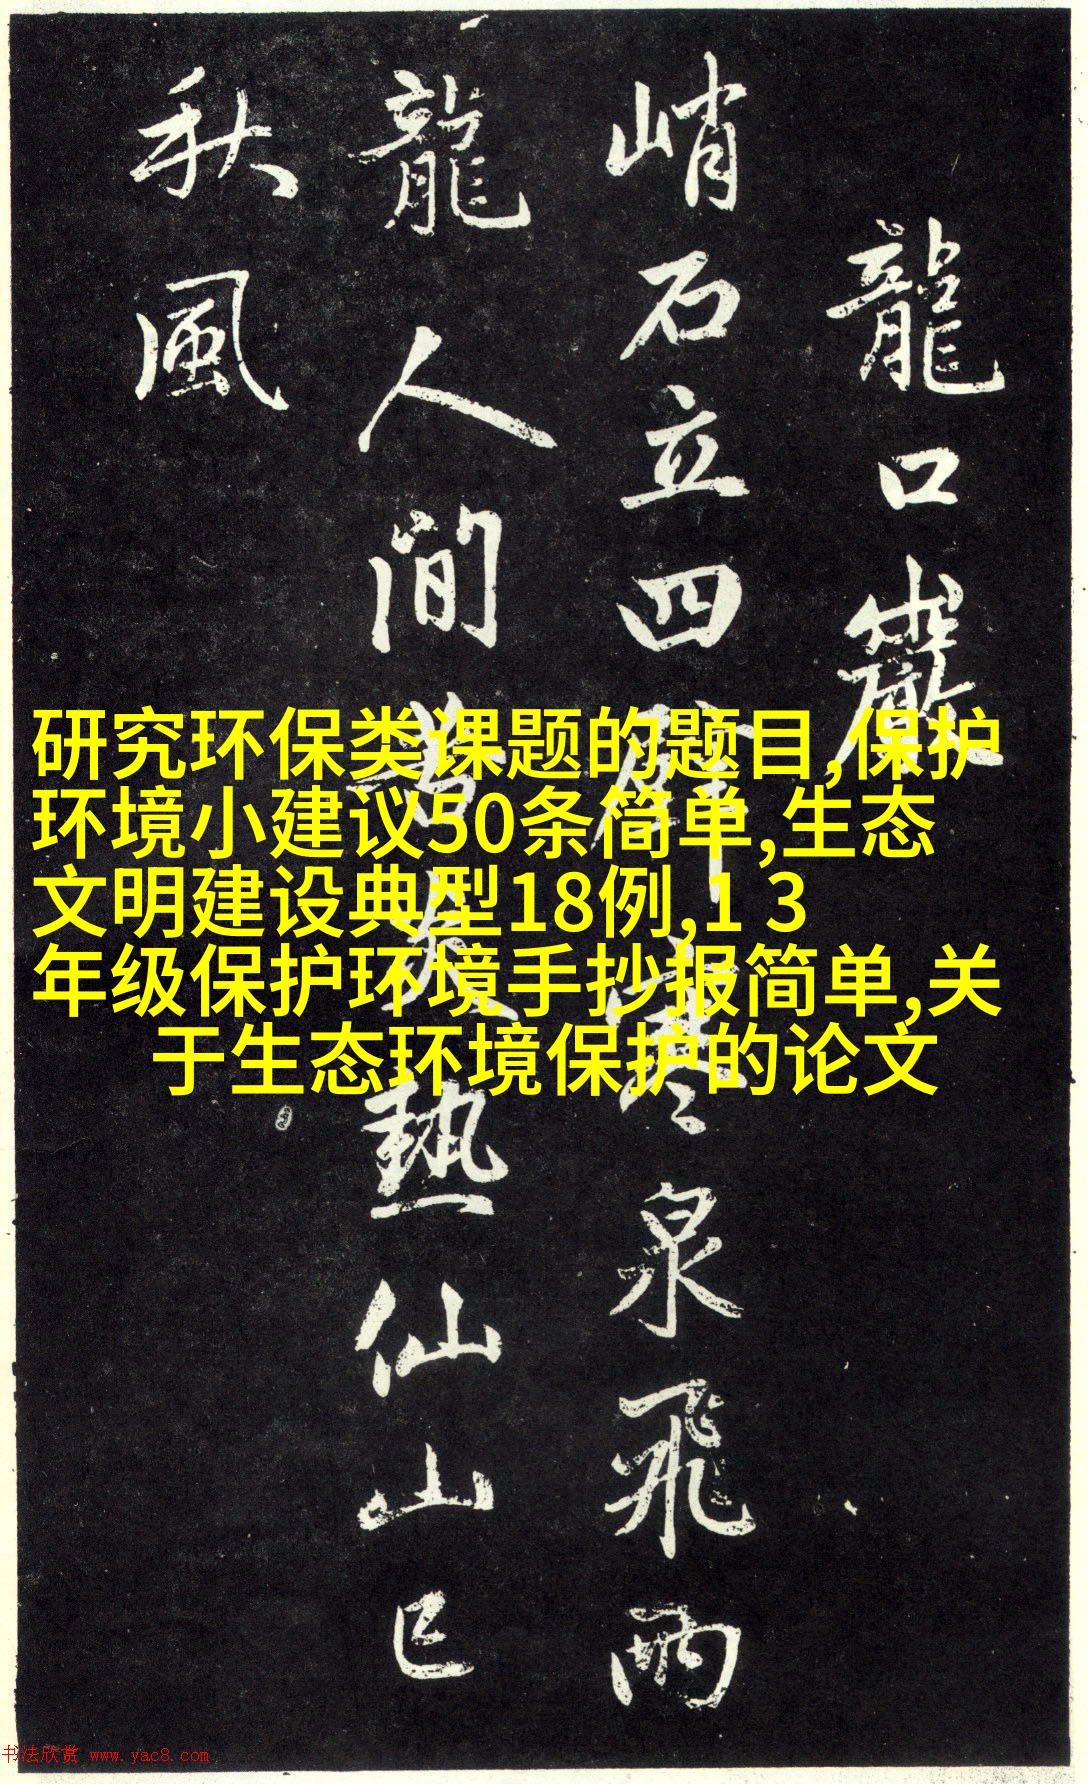 龍口巖
峭石立四壁寒泉飛兩
龍人間苦炎熱仙山已
秋風
研究环保类课题的题目,保护
环境小建议50条简单,生态
文明建设典型18例,1 3
年级保护环境手抄报简单,关
于生态环境保护的论文
书法欣赏 www.yac8.com